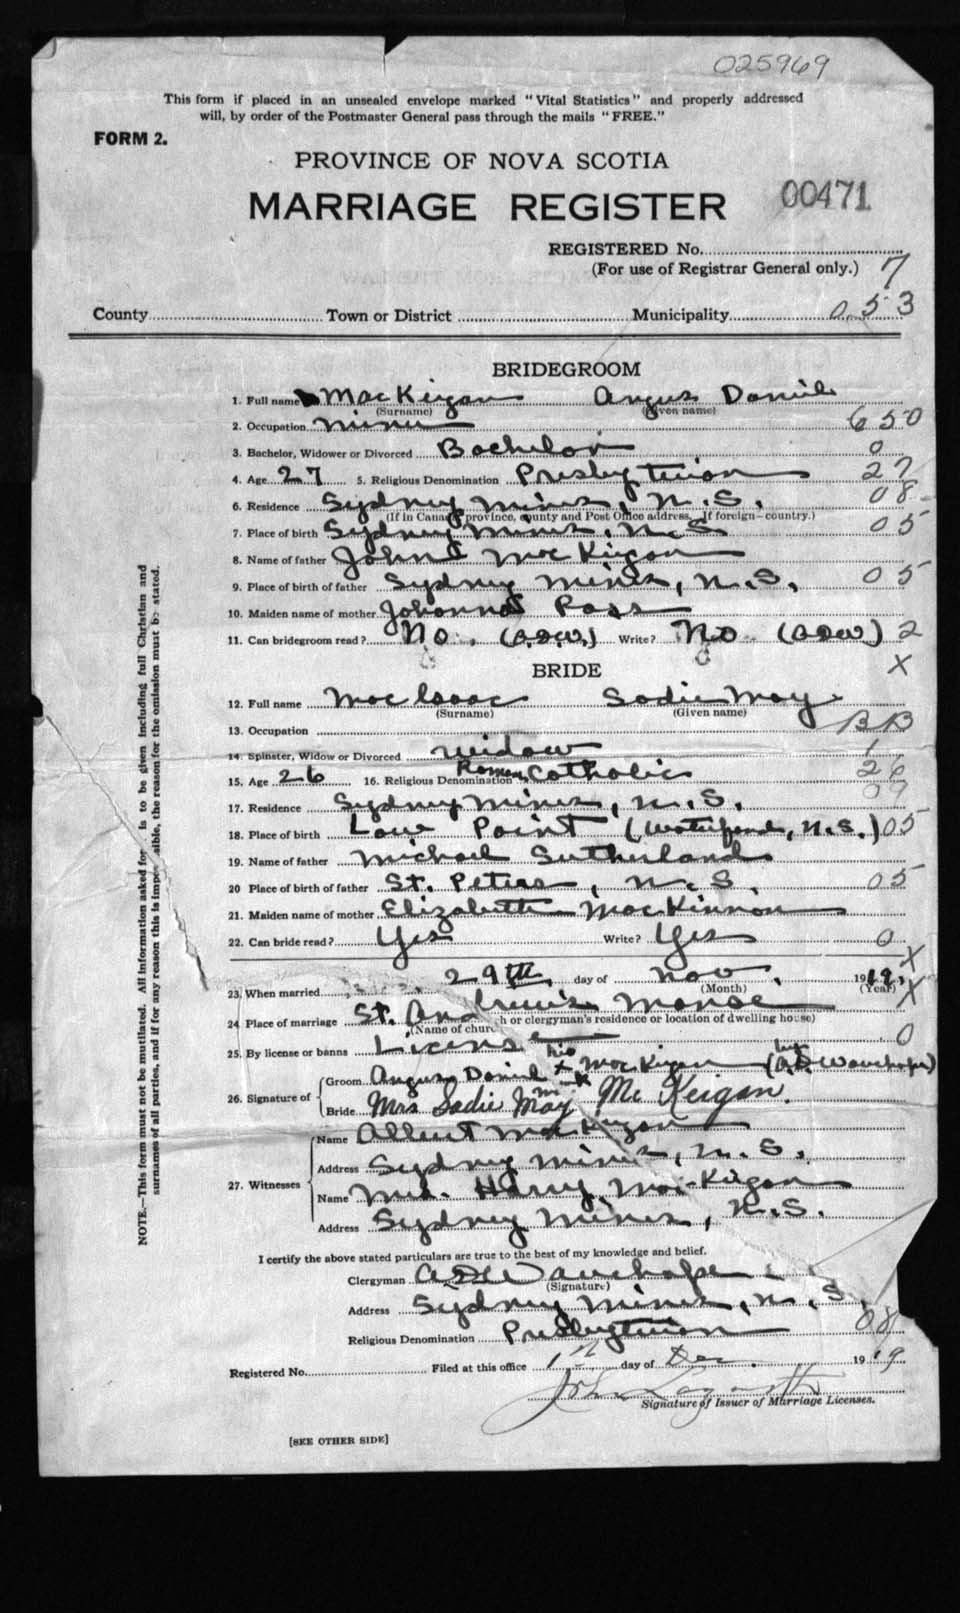 025969
This form if placed in an unsealed envelope marked "Vital Statistics" and properly addressed
will, by order of the Postmaster General pass through the mails "FREE."
FORM 2.
PROVINCE OF NOVA SCOTIA
MARRIAGE REGISTER 00471
REGISTERED No.
(For use of Registrar General only.) 7
County Town or District Municipality 053
BRIDEGROOM
1. Full name MacKeigan Angus Daniel
(Surname) (Given name)
2. Occupation Miner 650
3. Bachelor, Widower or Divorced Bachelor 0
4. Age 27 5. Religious Denomination Presbyterian 27
6. Residence Sydney Mines, N.S. 08
(If in Canada, province, county and Post Office address. If foreign-country.)
7. Place of birth Sydney Mines, N.S. 05
8. Name of father John MacKeigan
9. Place of birth of father Sydney Mines, N.S. 05
10. Maiden name of mother Johanna Ross
11. Can bridegroom read? No. (A.D.W.) Write? No (ADW) 2
X
BRIDE
12. Full name MacIsaac Sadie May
(Surname) (Given name)
13. Occupation BB
14. Spinster, Widow or Divorced Widow 1
15. Age 26 16. Religious Denomination Roman Catholic 26
17. Residence Sydney Mines, N.S. 09
18. Place of birth Low Point (Waterford, N.S.) 05
19. Name of father Michael Sutherland
20 Place of birth of father St. Peters, N.S. 05
21. Maiden name of mother Elizabeth MacKinnon
22. Can bride read? Yes Write? Yes 0
X
23. When married 29th day of Nov. 1919.
(Month) (Year) X
24. Place of marriage St. Andrew's Manse
(Name of church or clergyman's residence or location of dwelling house)
25. By license or banns License 0
26. Signature of Groom Angus Daniel his X MacKeigan (by A.D. Wauchope)
Bride Mrs Sadie May Mc Keigan.
27. Witnesses Name Albert MacKeigan
Address Sydney Mines, N.S.
Name Mrs. Harry MacKeigan
Address Sydney Mines, N.S.
I certify the above stated particulars are true to the best of my knowledge and belief.
Clergyman A D Wauchope
(Signature)
Address Sydney Mines, N.S.
Religious Denomination Presbyterian 08
Registered No. Filed at this office 1st day of Dec. 1919
John
Signature of Issuer of Marriage Licenses.
[SEE OTHER SIDE]
NOTE.—This form must not be mutilated. All information asked for is to be given including full Christian and
surnames of all parties, and if for any reason this is impossible, the reason for the omission must be stated.